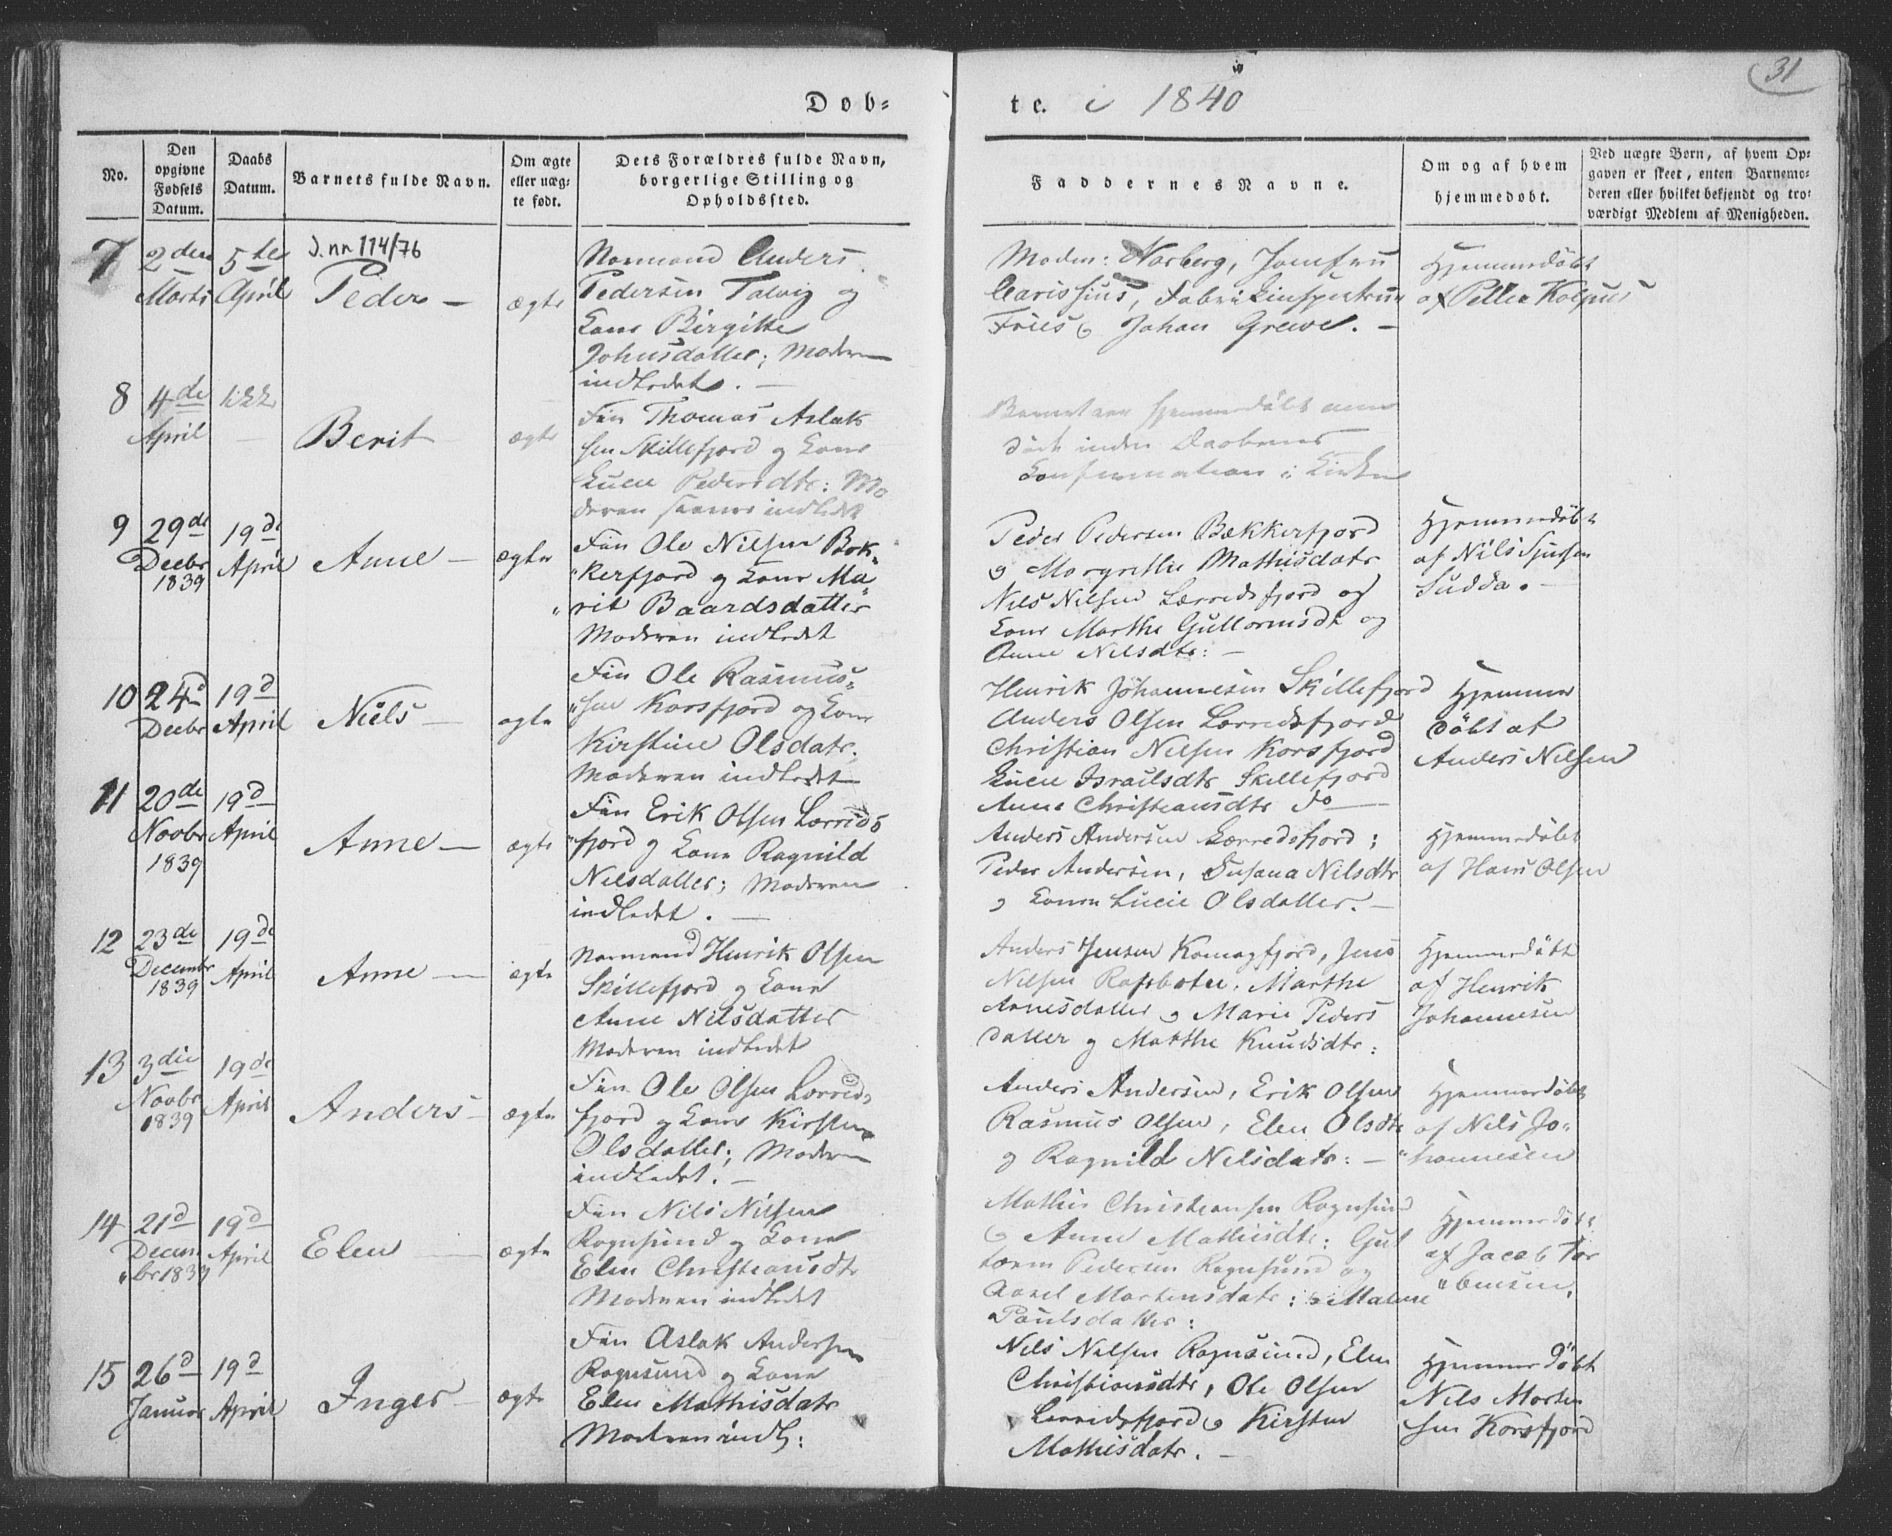 31
Døb-
te. i 1840
No.
Den opgivne Fødsels Datum.
Daabs Datum.
Barnets fulde Navn.
Om ægte eller uægte født.
Dets Forældres fulde Navn, borgerlige Stilling og Opholdssted.
Faddernes Navne.
Om og af hvem hjemmedøbt.
Ved uægte Børn, af hvem Opgaven er skeet, enten Barnemoderen eller hvilket bekjendt og troværdigt Medlem af Menigheden.
7
2den Marts
5te April
J.nr 114/76
Peder —
ægte
Normand Anders
Pedersen Talvig og
Kone Birgitte
Johnsdatter; Moderen
indledet. —
Madm: Norberg, Jomfru
Clarissius,
Friis og Johan Grewe. —
Hjemmedøbt
af Petter Kolpus
8
4de April
Berit
ægte
Fin Thomas Aslak
sen Skillefjord og Kone
Lucie Pedersdtr: Mo
deren indledet
Barnet var hjemmedøbt men
døde inden Daabens
Confirmation i Kirken
9
29de Decbr 1839
19de April
Anne —
ægte
Fin Ole Nilsen Bek-
kerfjord og Kone Ma-
rit Baardsdatter
Moderen indledet
Peder Pedersen Bækkerfjord
og Margrethe Mathisdatr
Nils Nilsen Lærredsfjord og
Kone Marthe Guttormsdt og
Anne Nilsdtr: —
Hjemmedøbt
af Nils Sjursen
Sudda. —
10
24d Decbr
19d April
Niels —
ægte
Fin Ole Rasmus-
sen Korsfjord og Kone
Kirstine Olsdatr.
Moderen indledet
Henrik Johannesen Skillefjord
Anders Olsen Lærredsfjord
Christian Nilsen Korsfjord
Lucie Israilsdtr Skillefjord
Anne Christiansdtr do —
Hjemme
døbt af
Anders Nilsen
11
20de Novbr 1839
19d April
Anne —
ægte
Fin Erik Olsen Lærreds
fjord og Kone Ragnild
Nilsdatter; Moderen
indledet. —
Anders Andersen Lærredsfjord;
Peder Andersen, Susana Nilsdtr
og Konen Lucie Olsdatter. —
Hjemmedøbt
af Hans Olsen
12
23de Decembr 1839
19de April
Anne —
ægte
Normand Henrik Olsen
Skillefjord og Kone
Anne Nilsdatter
Moderen indledet
Anders Jensen Komagfjord, Jens
Nilsen Rafsbotn. Marthe
Arnesdatter og Marie Peders
datter og Marthe Knudsdtr:
Hjemmedøbt
af Henrik
Johannesen
13
3die Novbr 1839
19de April
Anders —
ægte
Fin Ole Olsen Lærreds-
fjord og Kone Kirsten
Olsdatter; Moderen
indledet. —
Anders Andersen, Erik Olsen
Rasmus Olsen, Elen Olsdtr
og Ragnild Nilsdatr: —
Hjemmedøbt
af Nils Jo-
hannesen
14
21d Decem br 1839
19d April
Elen —
ægte
Fin Nils Nilsen
Rognsund og Kone
Elen Christiansdtr
Moderen indledet
Mathis Christiansen Rognsund
og Anne Mathisdtr: Gut
torm Pedersen Rognsund og
Mortensdatr: og Malene
Paulsdatter:
Hjemmedøbt
af Jacob Tor
bensen.
15
26d Januar
19d April
Inger —
ægte
Fin Aslak Andersen
Rognsund og Kone
Elen Mathisdatr
Moderen indl:
Nils Nilsen Rognsund, Elen
Christiansdtr, Ole Olsen
Lerredsfjord og Kirsten
Mathisdatr. —
Hjemmedøbt
Nils Morten
sen Korsfjord